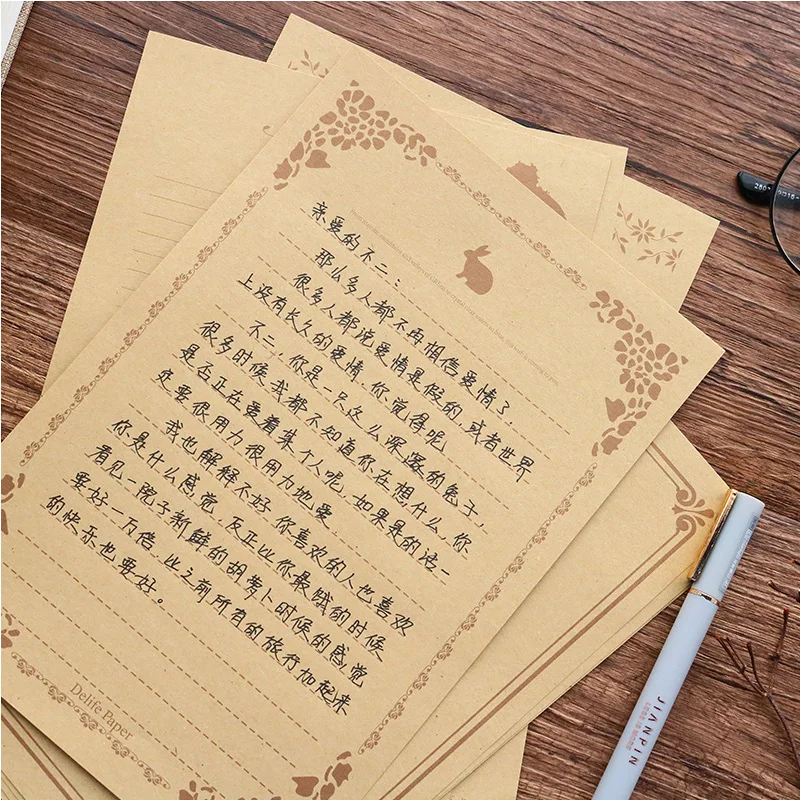 亲爱的不二：
那么多人都不再相信爱情了，
很多人都说爱情是假的，或者世界
上没有长久的爱情，你觉得呢
不二，你是一只这么深邃的兔子，
很多时候我都不知道你在想什么，你
是否正在爱着某个人呢，如果是的话一
定要很用力很用力地爱
我也解释不好，你喜欢的人也喜欢
你是什么感觉，反正比你最饿的时候
看见一院子新鲜的胡萝卜时候的感觉
要好一万倍，比之前所有的旅行加起来
的快乐也要好。
Delife Paper
JIANPIN